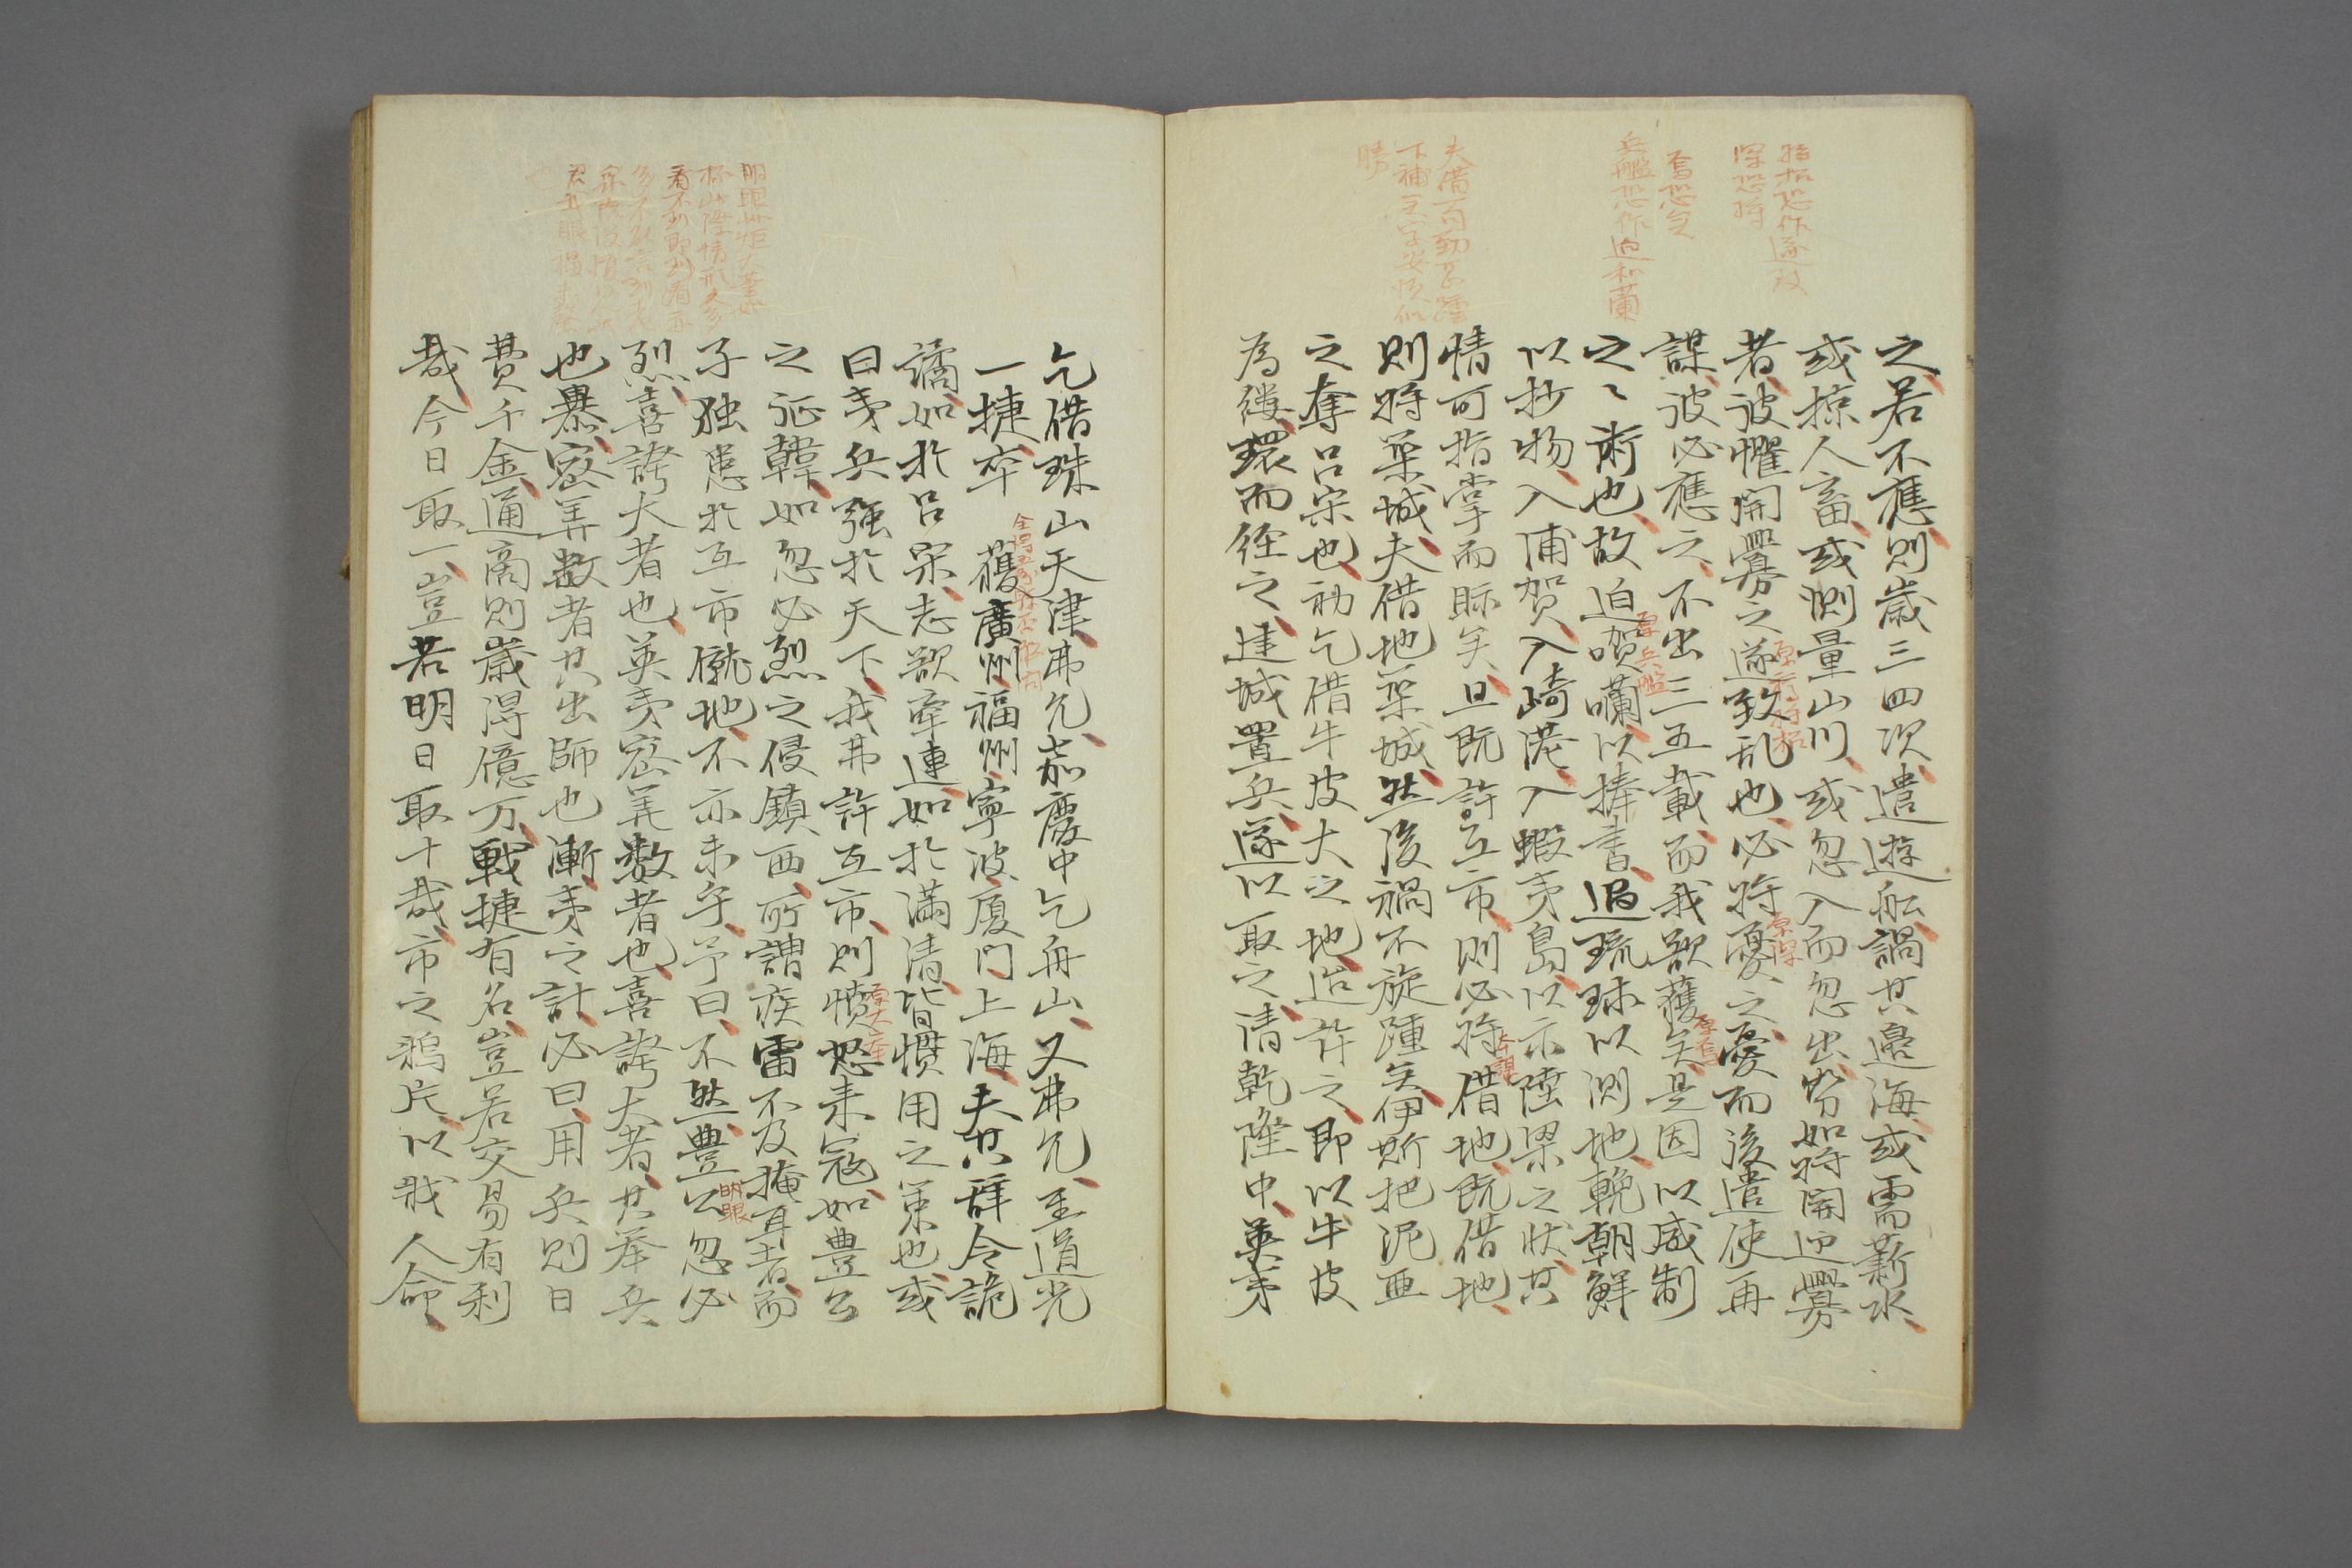 之若不應則歳三四次遣遊舩譎其邉海或需薪水
或掠人畜或測量山川或忽入而忽出勞如將開迎釁
者彼懼開釁之遂致乱也必將憂之憂而後遣使再
謀彼必應之不出三五載而我欲獲矣是因以威制
之々術也故迫咬𠺕以捧書過琉球以測地輓朝鮮
以抄物入浦賀入崎港入蝦夷島以示陸梁之状其
情可指掌而眎矣且既許互市則必將借地既借地
則將築城夫借地築城然後禍不旋踵矣伊斯把泥亜
之奪呂宋也初乞借牛皮大之地造許之即以牛皮
為縷環而径之建城置兵遂以取之清乾隆中英夷
乞借珠山天津弗允嘉慶中乞舟山又弗允至道光
一捷卒獲廣州福州寧波厦門上海夫其辞令詭
譎如於呂宋志欲牽連如於満清皆慣用之策也或
曰夷兵強於天下我弗許互市則憤怒来寇如豊公
之征韓如忽必烈之侵鎮西所謂疾雷不及掩耳者而
子独患於互市僦地不亦未乎予曰不然豊公忽必
烈喜誇大者也英夷密筭数者也喜誇大者其挙兵
也暴密筭数者其出師也漸夷之計必曰用兵則日
費千金通商則歳得億万戦捷有名豈若交易有利
哉今日取一豈若明日取十哉市之鴉片以戕人命
原兵艦
明眼
深恐將
兵艦恐作過和蘭
夫借可動旋踵